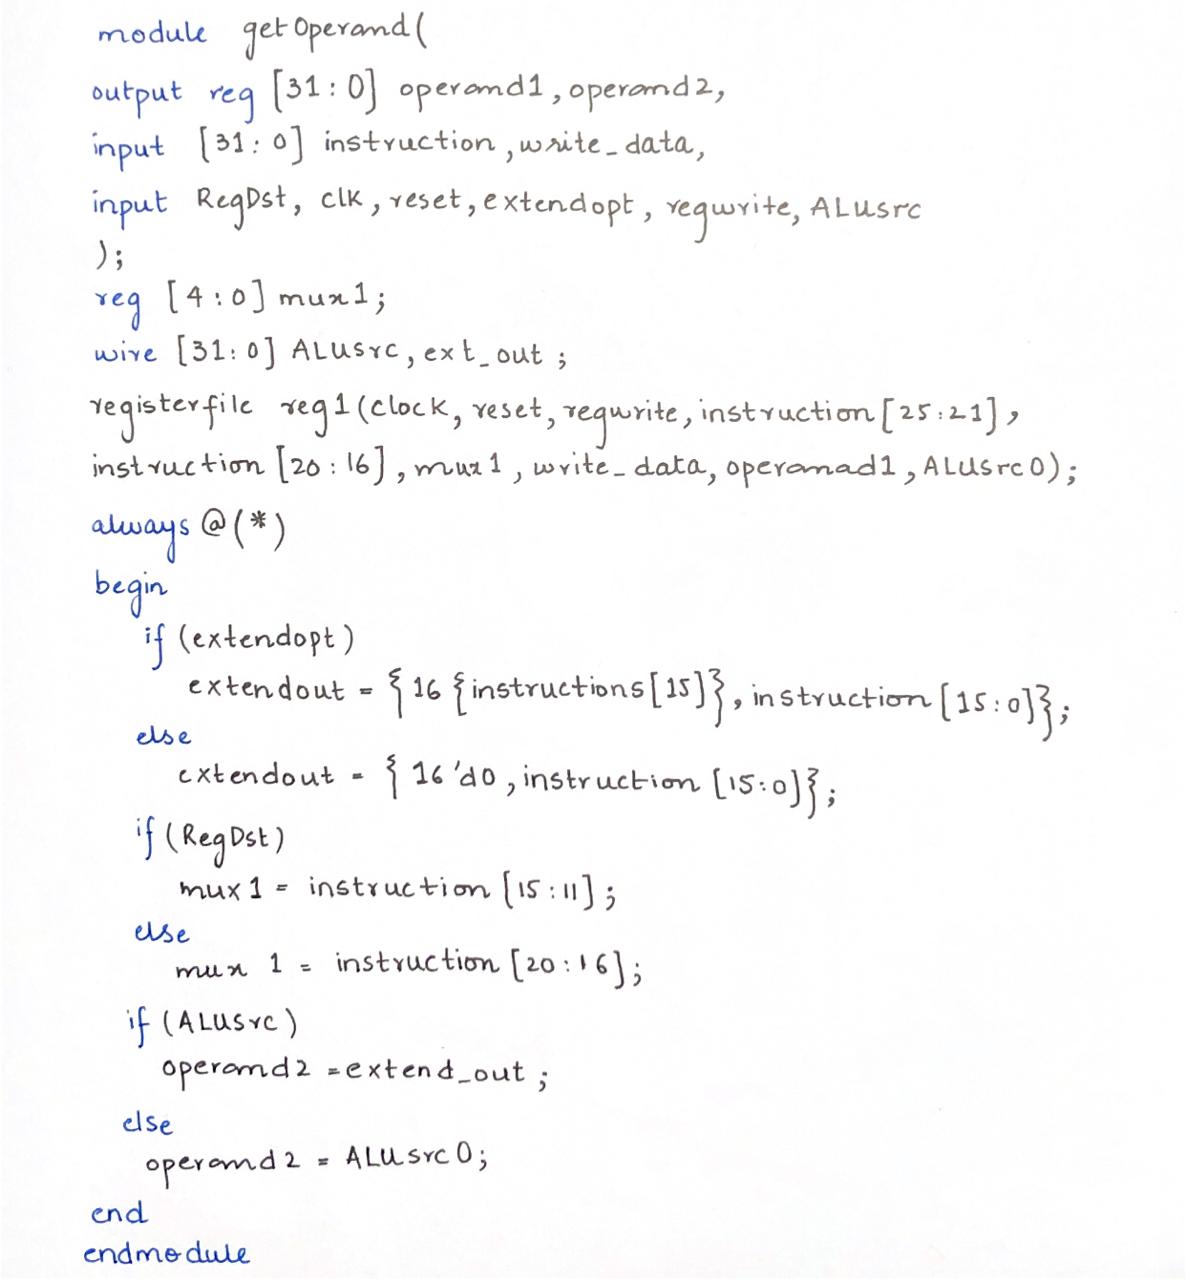 module getOperand(
output reg [31:0] operand1, operand2,
input [31:0] instruction, write_data,
input RegDst, clk, reset, extendopt, regwrite, ALUsrc
);
reg [4:0] mux1;
wire [31:0] ALUsrc, ext_out;
registerfile reg1(clock, reset, regwrite, instruction[25:21],
instruction[20:16], mux1, write_data, operamad1, ALUsrc0);
always @(*)
begin
if (extendopt)
extendout = {16{instructions[15]}, instruction[15:0]};
else
extendout = {16'd0, instruction[15:0]};
if (RegDst)
mux1 = instruction[15:11];
else
mux 1 = instruction[20:16];
if (ALUsrc)
operand2 = extend_out;
else
operand2 = ALUsrc0;
end
endmodule